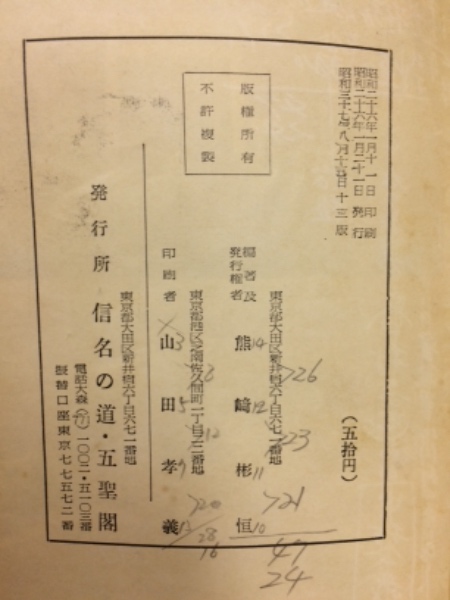 昭和二十六年一月十一日 印刷
昭和二十六年一月二十一日 発行
昭和三十七年八月十五日 十三版
(五拾円)
版権所有
不許複製
編著及
発行権者
東京都大田区新井宿六丁目六七一番地
熊﨑彬恒
14
12
11
10
>26
>23
>21
47
24
印刷者
山田孝義
3
5
7
13
>8
>12
>20
28
16
発行所
東京都大田区新井宿六丁目六七一番地
信名の道・五聖閣
電話大森(76)一〇〇二・五一〇三番
振替口座東京七七五七二番